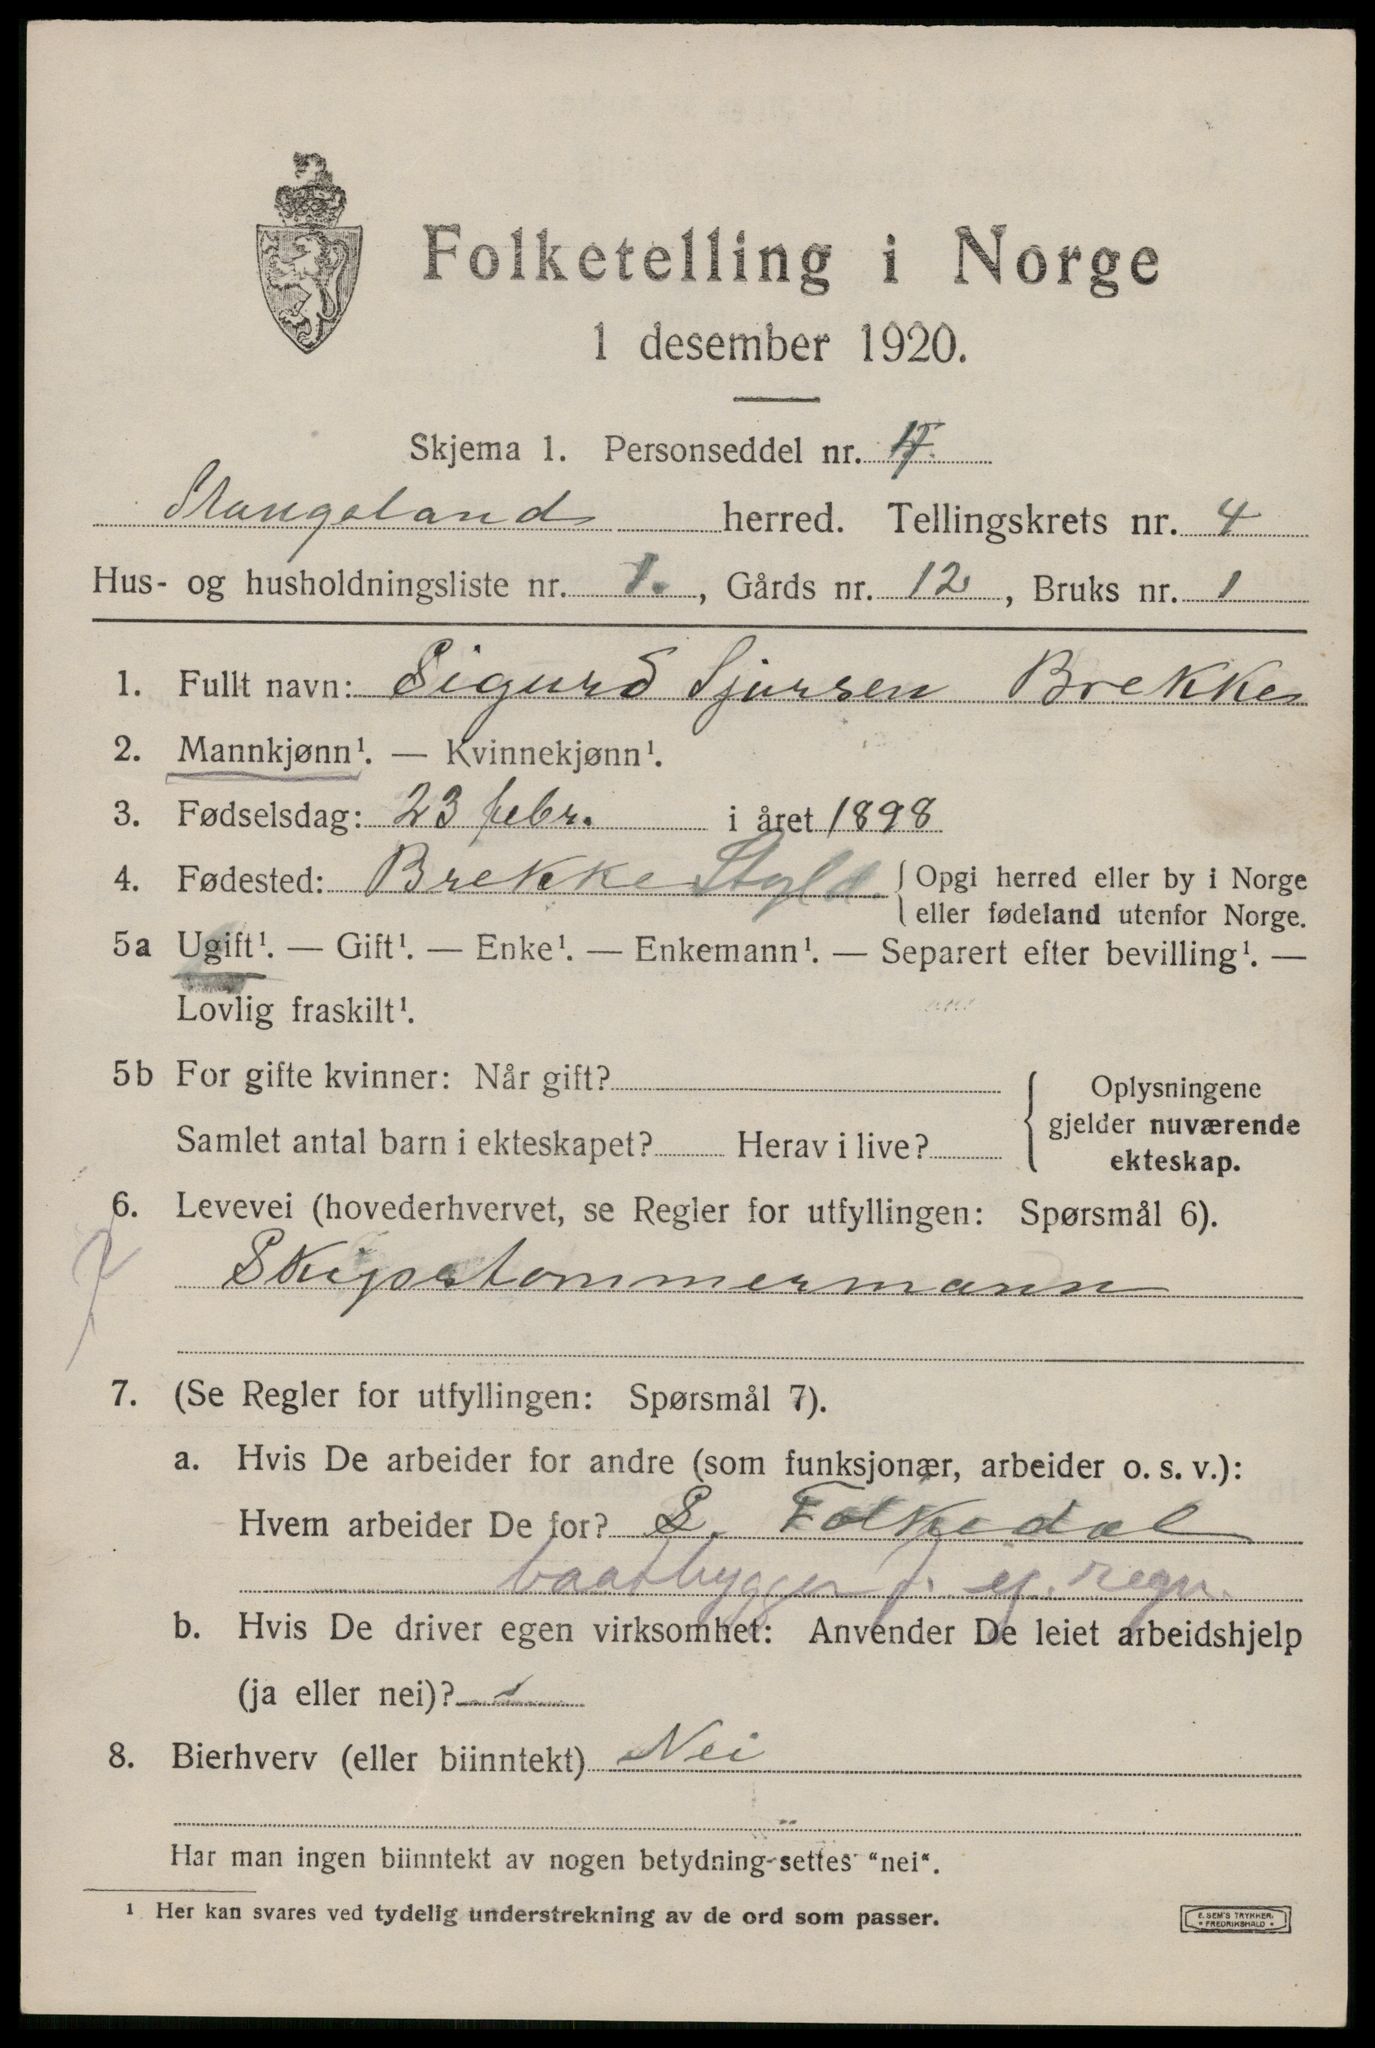 Folketelling i Norge
1 desember 1920.
Skjema 1. Personseddel nr.
Stangaland herred. Tellingskrets nr. 4
Hus- og husholdningsliste nr. 1., Gårds nr. 12, Bruks nr. 1
1. Fullt navn: Sigurd Sjursen Brekke
2. Mannkjønn¹. — Kvinnekjønn¹.
3. Fødselsdag: 23 febr. i året 1898
4. Fødested: Brekke { Opgi herred eller by i Norge
eller fødeland utenfor Norge.
5a Ugift¹. — Gift¹. — Enke¹. — Enkemann¹. — Separert efter bevilling¹. —
Lovlig fraskilt¹.
5b For gifte kvinner: Når gift?
Samlet antal barn i ekteskapet? Herav i live?
{ Oplysningene
gjelder nuværende
ekteskap.
6. Levevei (hovederhvervet, se Regler for utfyllingen: Spørsmål 6).
Skipstommermann
7. (Se Regler for utfyllingen: Spørsmål 7).
a. Hvis De arbeider for andre (som funksjonær, arbeider o. s. v.):
Hvem arbeider De for? S. Folkedal
baatbygger f. eg. regn.
b. Hvis De driver egen virksomhet: Anvender De leiet arbeidshjelp
(ja eller nei)?
8. Bierhverv (eller biinntekt) Nei
Har man ingen biinntekt av nogen betydning settes "nei".
¹ Her kan svares ved tydelig understrekning av de ord som passer.
E. SEM'S TRYKKERI
* FREDRIKSHALD *